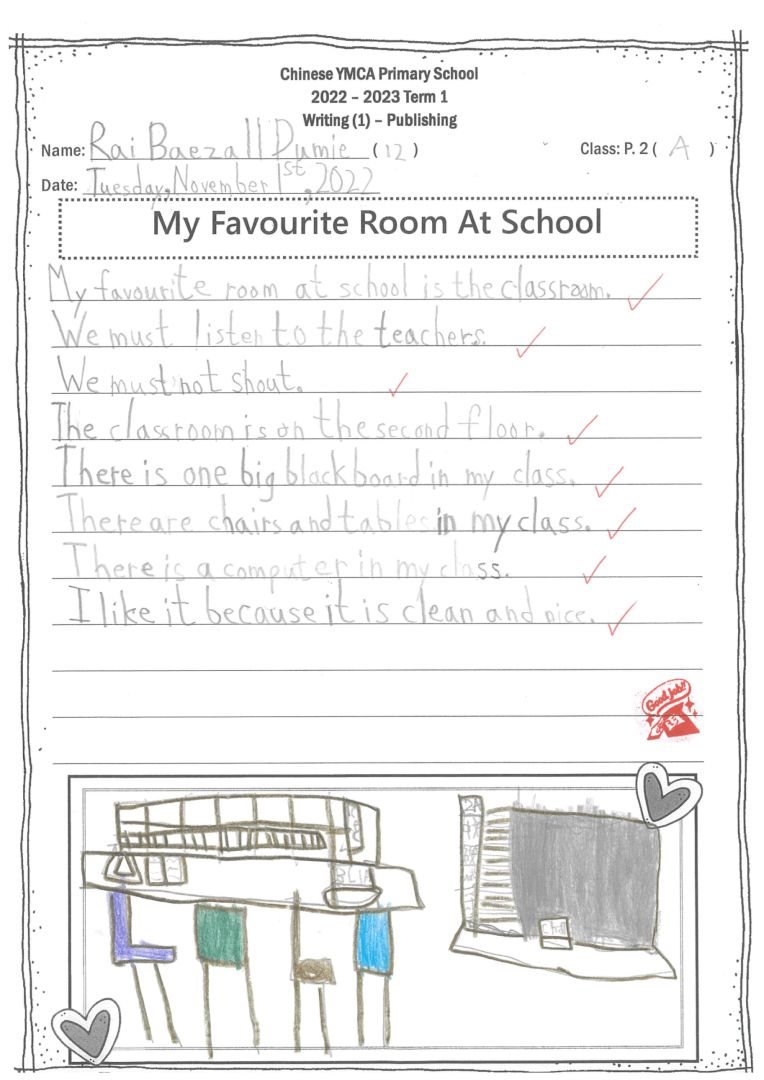 Chinese YMCA Primary School
2022 – 2023 Term 1
Writing (1) – Publishing
Name: Rai Baezall Dumie (12) Class: P. 2 ( A )
Date: Tuesday, November 1st, 2022
My Favourite Room At School
My favourite room at school is the classroom.
We must listen to the teachers.
We must not shout.
The classroom is on the second floor.
There is one big blackboard in my class.
There are chairs and tables in my class.
There is a computer in my class.
I like it because it is clean and nice.
Good job!!